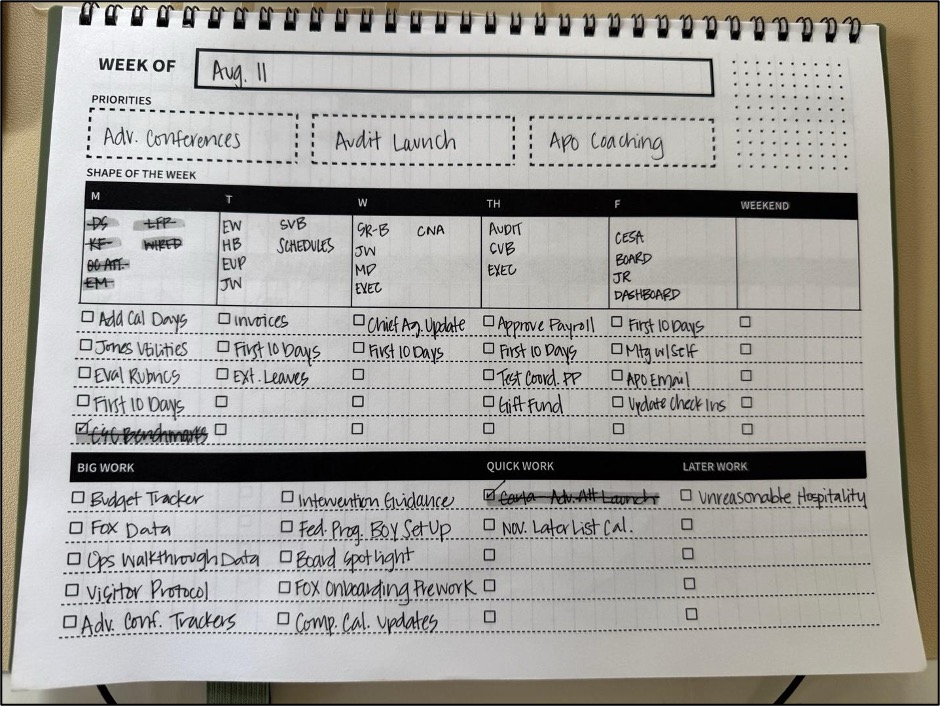 WEEK OF Aug. 11
PRIORITIES
Adv. Conferences Audit Launch Apo Coaching
SHAPE OF THE WEEK
M T W TH F WEEKEND
DS LFP EW SVB SR-B CNA AUDIT CESA
KF WIRED HB SCHEDULES JW SVB BOARD
OC ATT. EUP MD EXEC JR
EM JW EXEC DASHBOARD
Add Cal Days Invoices Chief Ag. Update Approve Payroll First 10 Days
Jones Utilities First 10 Days First 10 Days First 10 Days Mtg w/Self
Eval Rubrics Ext. Leaves Test Coord. PP Apo Email
First 10 Days Gift Fund Update Check Ins
C4C Benchmarks
BIG WORK QUICK WORK LATER WORK
Budget Tracker Intervention Guidance Adv. Att Launch Unreasonable Hospitality
Fox Data Fed. Prog. BOY Set Up Nov. Later List Cal.
Ops Walkthrough Data Board Spotlight
Visitor Protocol Fox Onboarding Prework
Adv. Conf. Trackers Comp. Cal. Updates